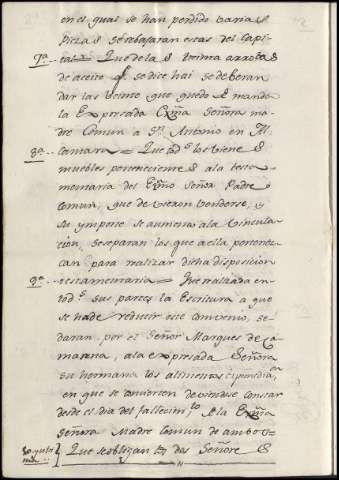 en el qual se han perdido varia s
Pieza s se rebajaran estas del Capi-
7ª tal = Que de la s treinta arroba s
de aceite q.e se dice hai se deberan
dar las veinte que quedo s mando
la Expresada Exmã Señora ma
dre Comun a Sn. Antonio en M.
8ª Camara = Que tod s los viene s
muebles perteneciente s a la testa-
mentaria del Exmo Señor Padre
Comun, que devieron venderse, y
su ymporte se aumento a la vincula-
cion, se separan los que a ella pertenez-
can para realizar dicha disposicion
9ª testamentaria = Que realizada en
tod s sus partes la Escritura a que
se ha de reducir este Convenio, se
daran por el Señor Marques de Ca-
marasa, a la expresada Señora
su hermana los alimentos
en que se convienen deviendose contar
desde el dia del fallecim.to de la Exmã
Señora Madre Comun de ambos =
Que se obligan los dos Señore s